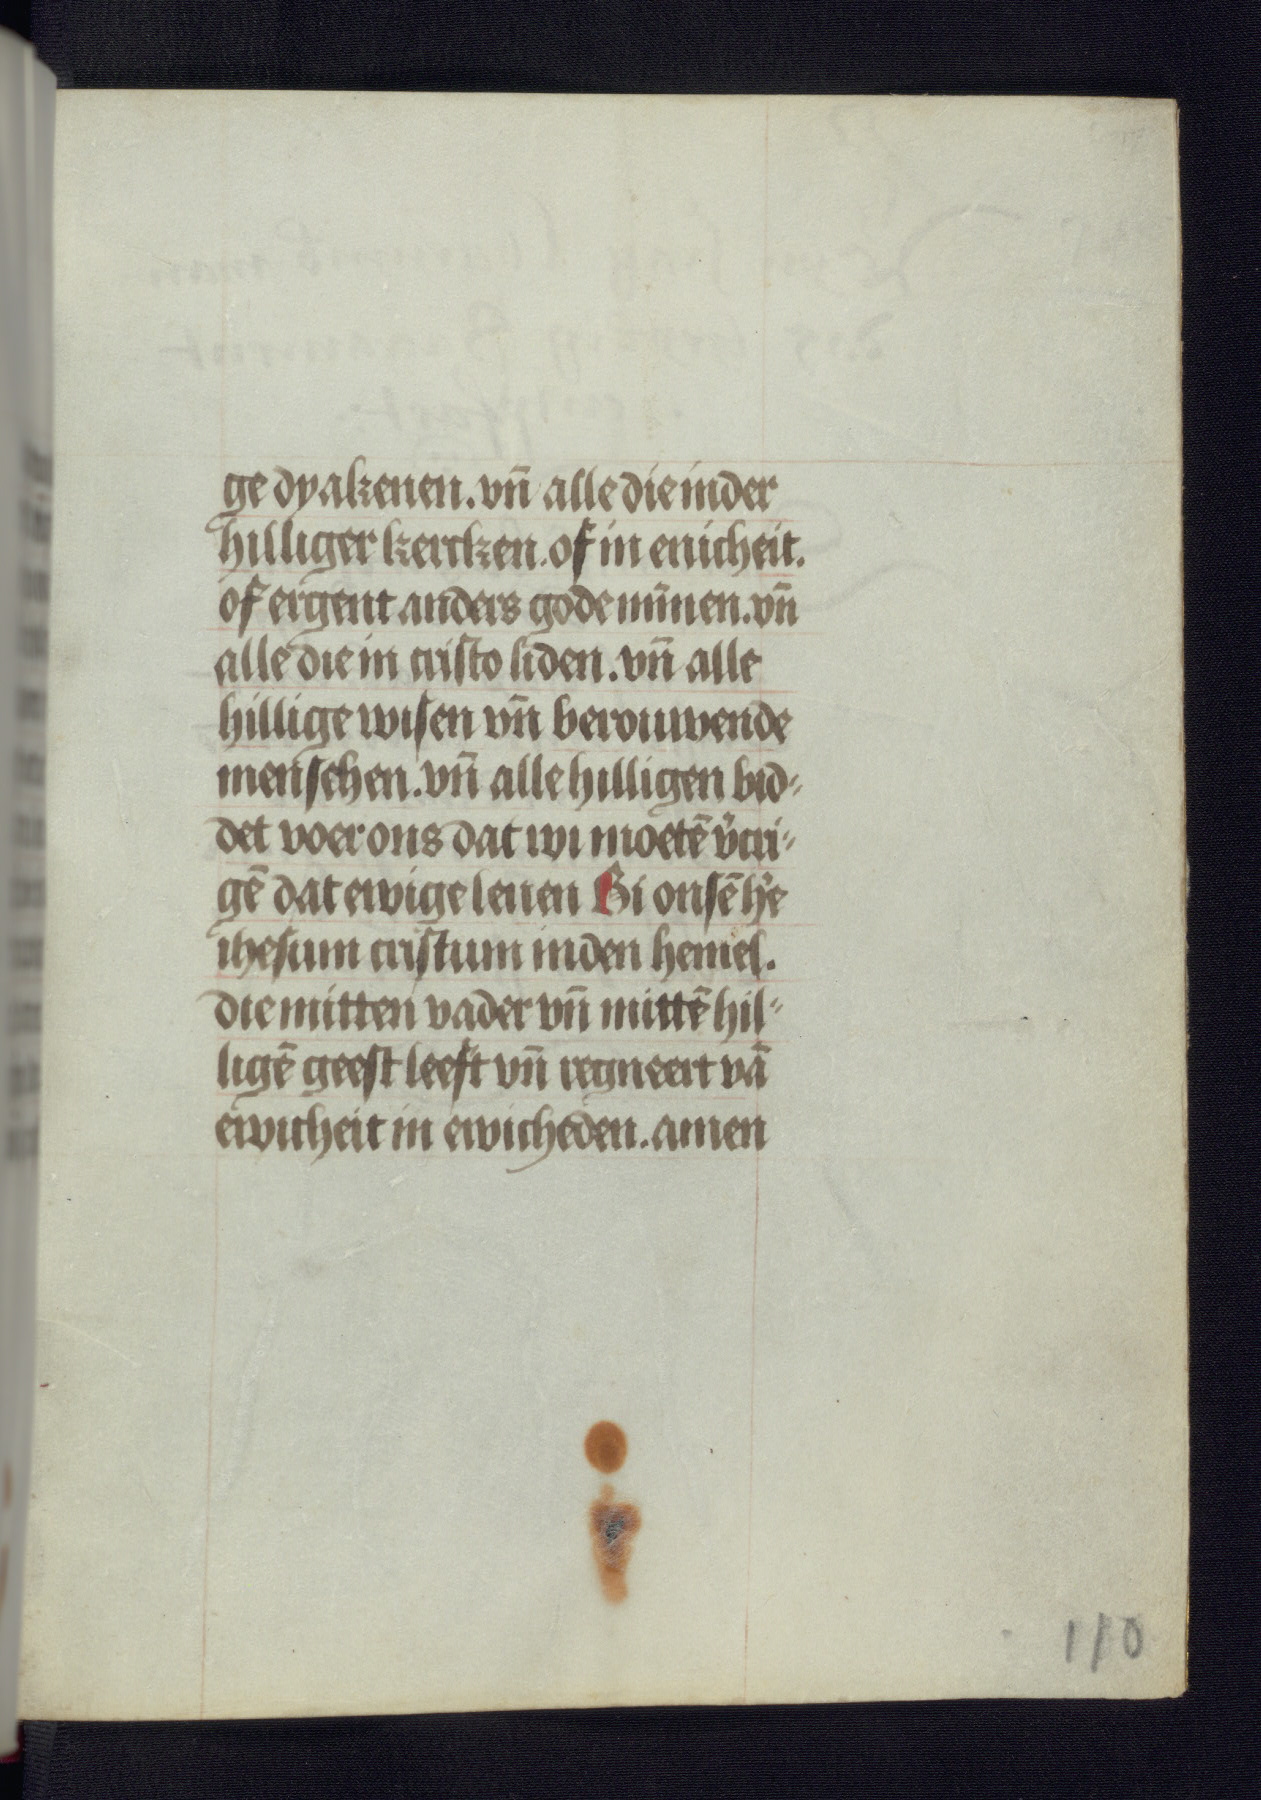 ge dyakenen. vn̄ alle die in der
hilliger kercken. of in enicheit.
of ergent anders gode mīnen. vn̄
alle die in cristo liden. vn̄ alle
hillige wisen vn̄ berouwende
menschen. vn̄ alle hilligen bid-
det voer ons dat wi moetē v̓cri-
gē dat ewige leuen Bi onsē h̓e
ihesum cristum in den hemel.
die mitten vader vn̄ mittē hil-
ligē geest leeft vn̄ regneert vā
ewicheit in ewicheden. amen
110